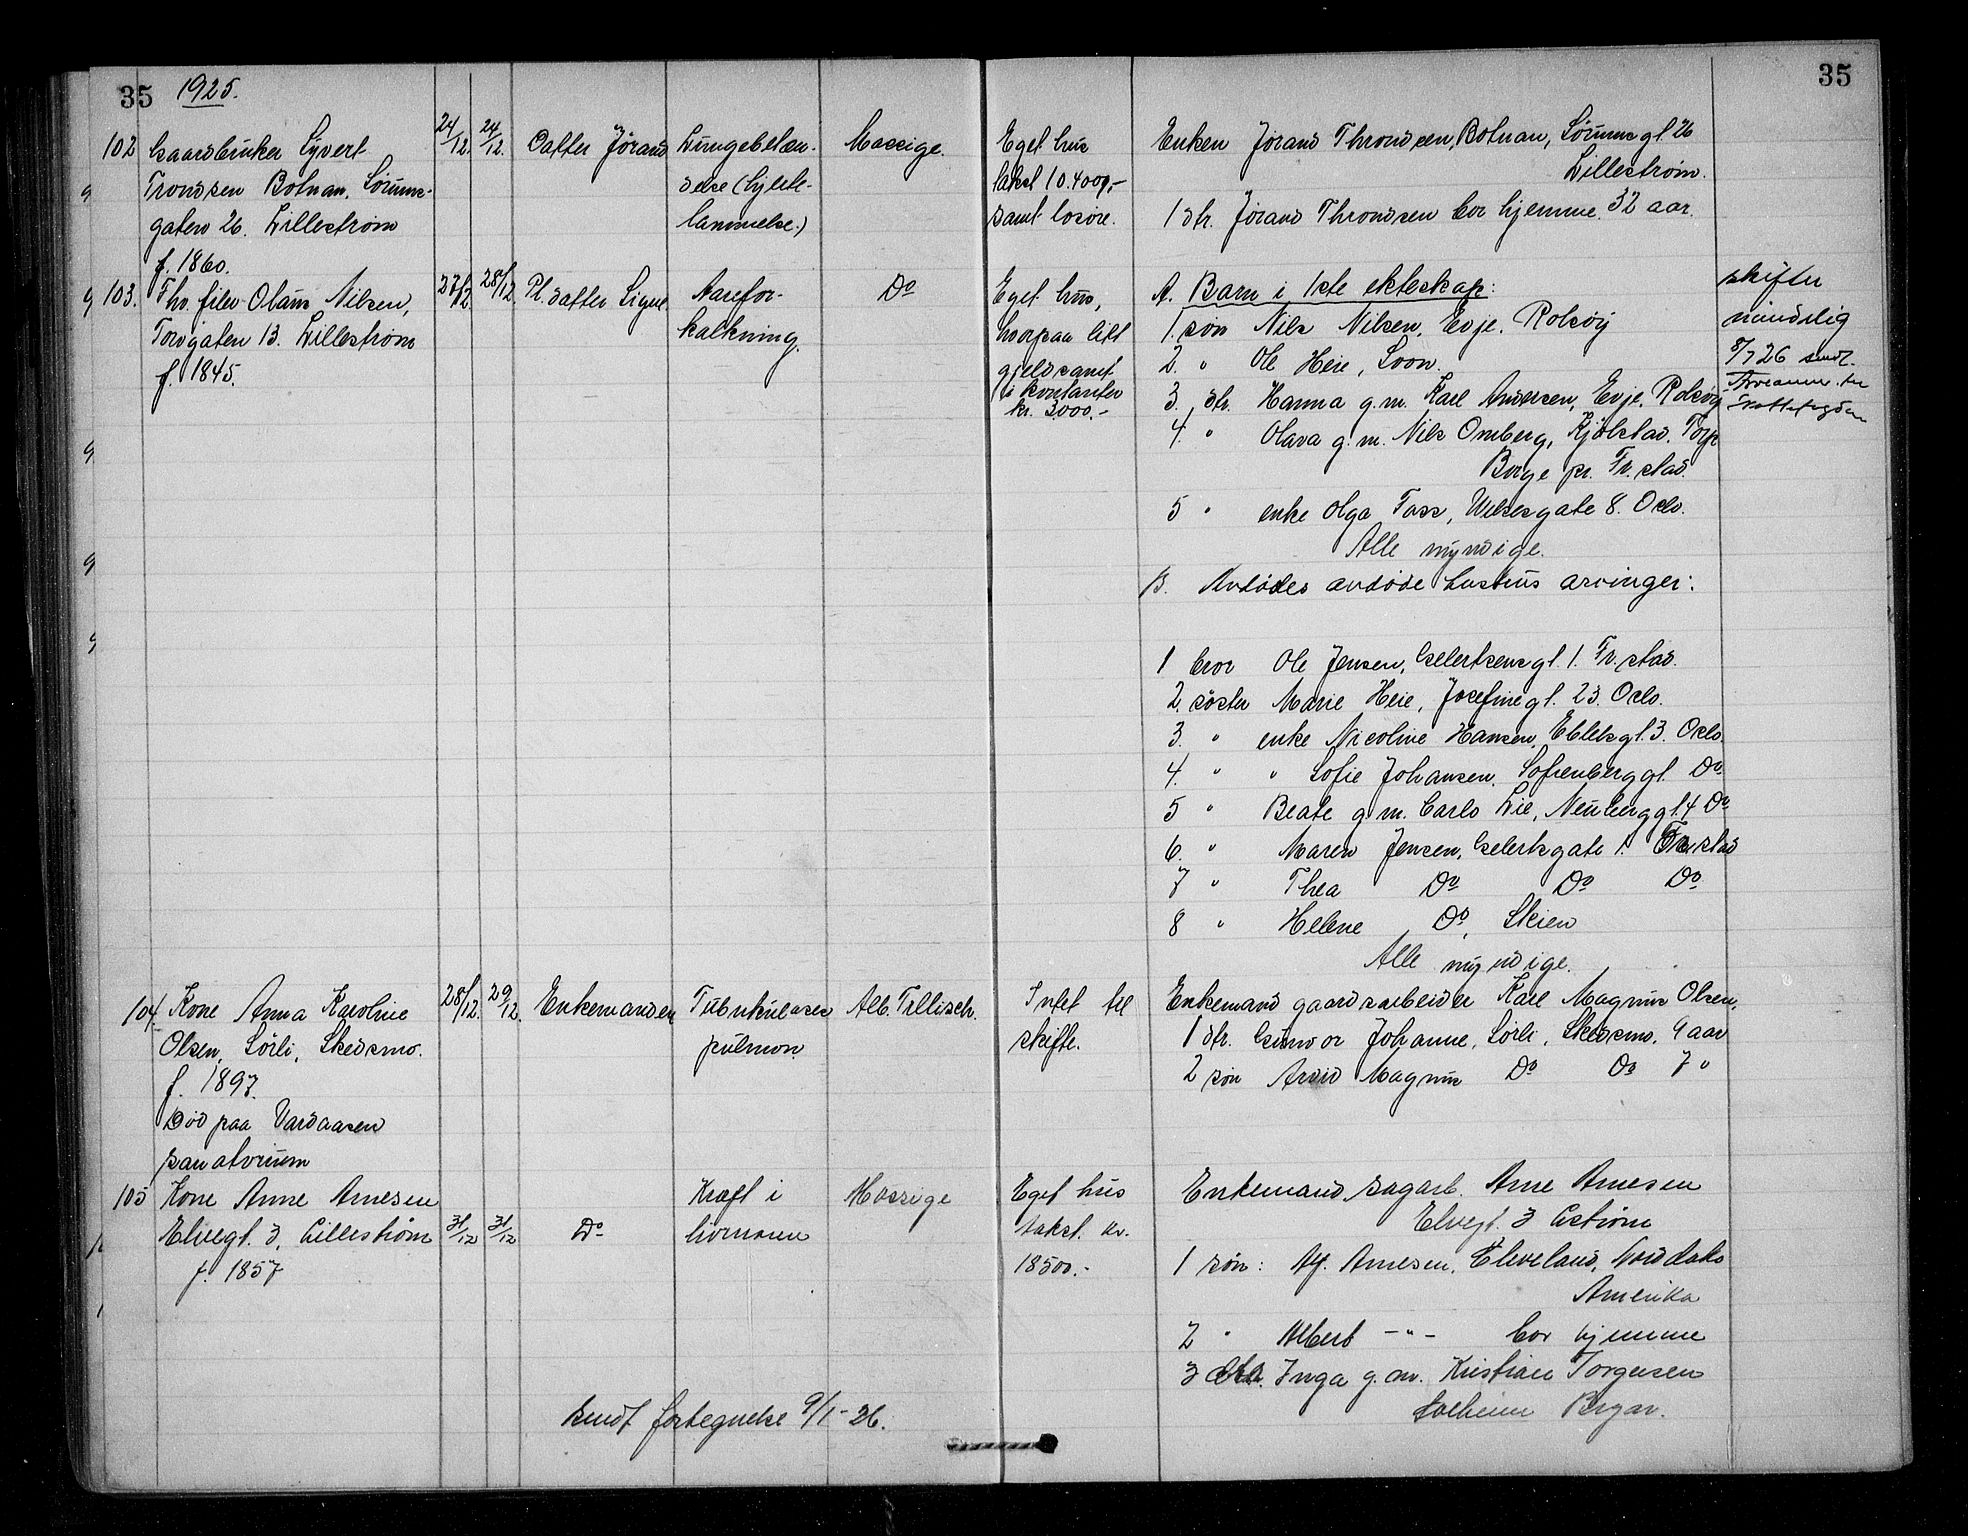 35 1925. 35
102 Gaardbruker Syvert
Trondsen Botnan, Sørums-
gaten 26. Lillestrøm
f. 1860.
24/12. 24/12.
Datter Jørand
Lungebetæn-
delse (hjerte-
lammelse.)
Mossige.
Eget hus
takst 10.400,-
samt løsøre.
Enken Jørand Throndsen, Botnan, Sørumsgt 26
Lillestrøm.
1 dtr. Jørand Throndsen bor hjemme. 32 aar.
103. Fhv. filer Olaus Nilsen,
Torvgaten 13. Lillestrøm
f. 1845.
27/12. 28/12.
Pl. datter Signe
Aarefor-
kalkning.
Do
Eget hus,
hvorpaa litt
gjeld samt
i kontanter
kr. 3000.-
A. Barn i 1ste ekteskap:
1. søn Nils Nilsen, Evje, Rolsøy
2. " Ole Heie, Soon.
3. dtr. Hanna g.m. Karl Andersen, Evje, Rolsøy
4. " Olava g.m. Nils Omberg, Kjølstad, Torp
Borge pr. Fr.stad.
5 " enke Olga Foss, Wilsesgate 8. Oslo.
Alle myndige.
skifter
mindelig
8/7 26 sendt
B. Avdødes avdøde hustrus arvinger:
1 bror Ole Jensen, Gelertsensgt. 1. Fr.stad.
2. søster Marie Heie, Josefinegt. 23. Oslo.
3. " enke Nicoline Hansen, Eblelsgt. 3. Oslo.
4. " " Sofie Johansen, Sofienberggt. Do.
5 " Beate g.m. Carlo Lie, Neuberggt. 4 Do
6. " Maren Jensen, Gelertsgate 1. Fr.stad
7 " Thea Do Do Do
8 " Helene Do, Skien
Alle myndige.
104 Kone Anna Karoline
Olsen, Sørli, Skedsmo.
f. 1897.
Død paa Vardaasen
sanatorium
28/12. 29/12.
Enkemanden
Tuberkulosis
pulmon
Alb. Tillisch.
Intet til
skifte.
Enkemand gaardsarbeider Karl Magnus Olsen,
1 dtr. Gunvor Johanne, Sørli, Skedsmo, 9 aar
2 søn Arvid Magnus Do Do 7 "
105 Kone Anne Arnesen
Elvegt. 3, Lillestrøm
f. 1857
31/12 31/12
Do
Kræft i
livmoren
Mossige
Eget hus
takst. kr.
18500.-
Enkemand sagarb. Arne Arnesen
Elvegt. 3 L.strøm
1 søn: Alf. Arnesen, Cleveland, Nord dako
Amerika
2 " Albert -"- bor hjemme
3 dtr. Inga g.m. Kristian Torgersen
Solheim Bryan.
Sendt fortegnelse 9/1-26.